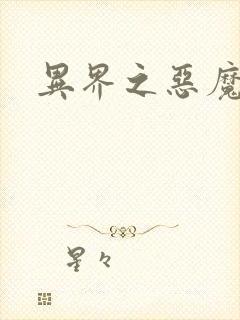 異界之惡魔
星々